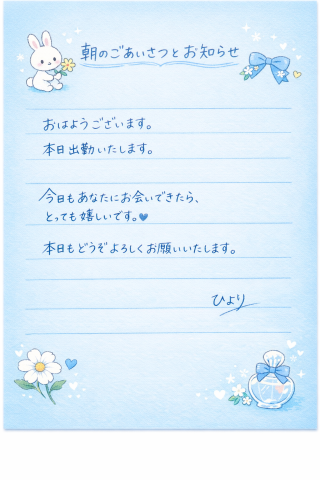 朝のごあいさつとお知らせ
おはようございます。
本日出勤いたします。
今日もあなたにお会いできたら、
とっても嬉しいです。💙
本日もどうぞよろしくお願いいたします。
ひより